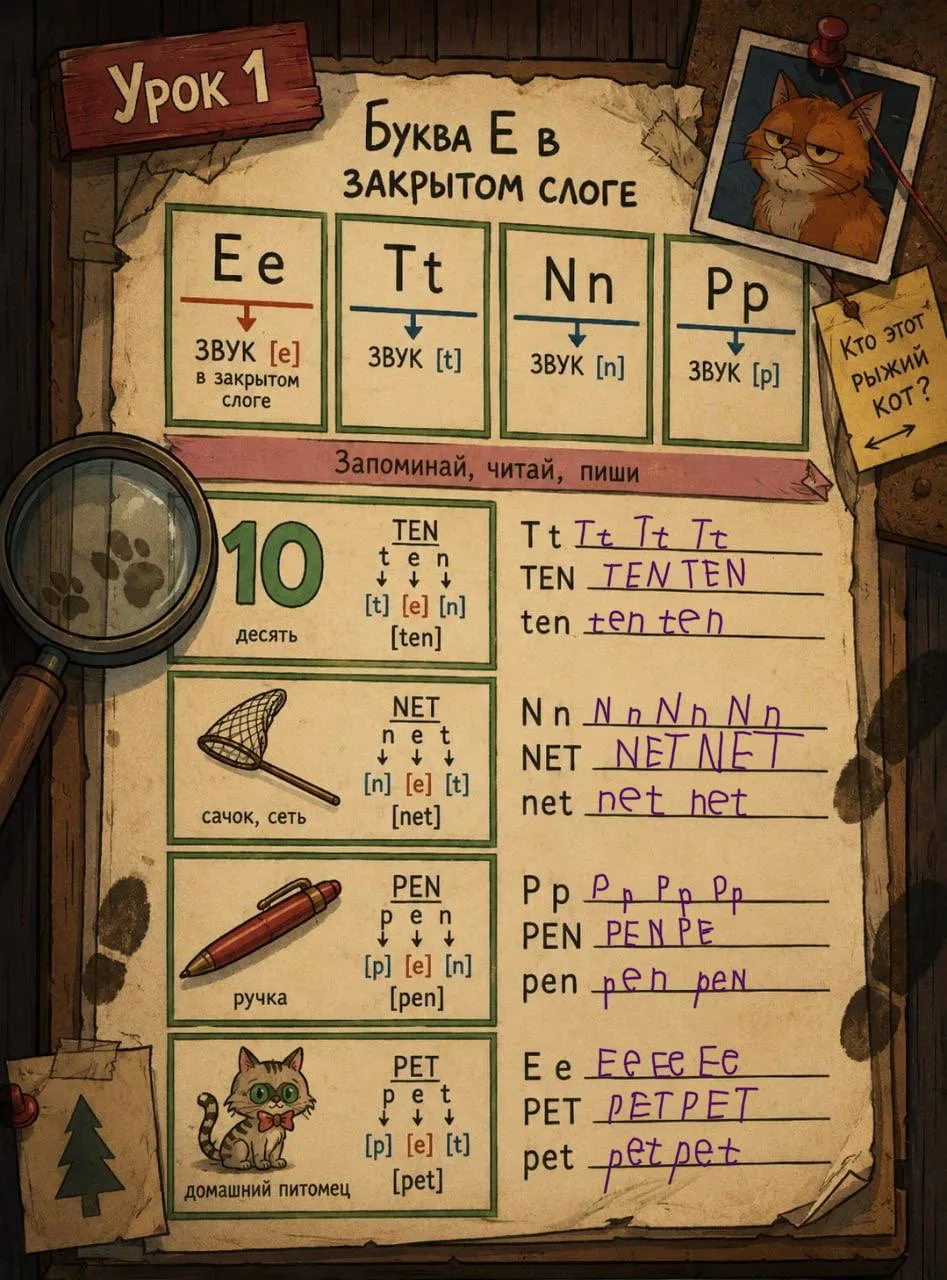 Урок 1
Буква Е в
закрытом слоге
Ee
звук [e]
в закрытом
слоге
Tt
звук [t]
Nn
звук [n]
Pp
звук [p]
Кто этот
рыжий
кот?
Запоминай, читай, пиши
10
десять
TEN
t e n
[t] [e] [n]
[ten]
T t Tt Tt Tt
TEN TEN TEN
ten ten ten
сачок, сеть
NET
n e t
[n] [e] [t]
[net]
N n N n N n N n
NET NET NET
net net net
ручка
PEN
p e n
[p] [e] [n]
[pen]
P p P p P p P p
PEN PEN PE
pen pen peN
домашний питомец
PET
p e t
[p] [e] [t]
[pet]
E e Ee Ee Ee
PET PET PET
pet pet pet